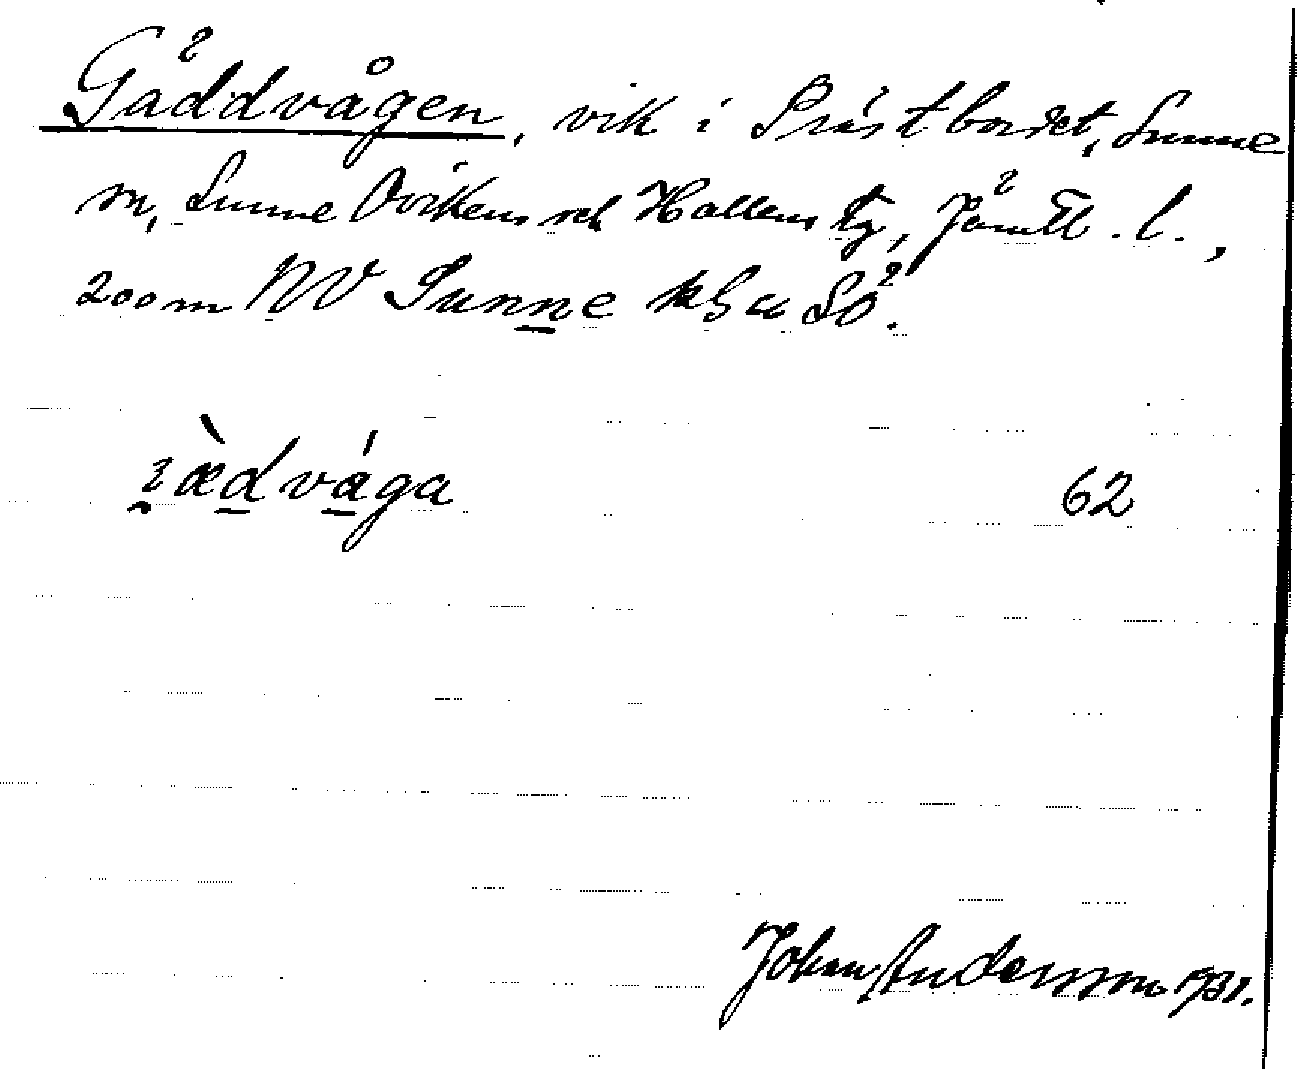 Gäddvågen, vik i Prästbordet, Sunne
sn, Sunne Ovikens och Hallens tg, Jämtl. l.,
200 m NV Sunne k:a Sö.
ædvága 62
Johan Andersson 1931.